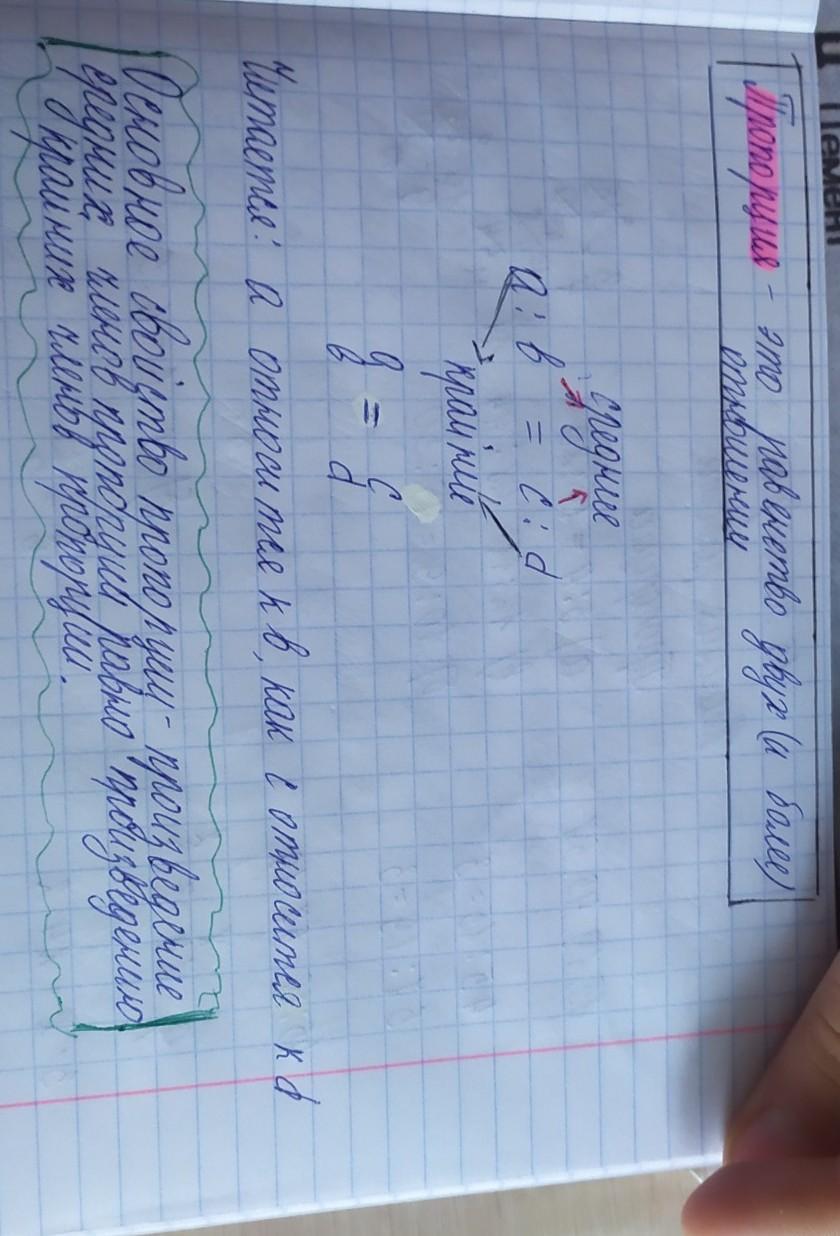 Пропорция - это равенство двух (и более)
отношений
средние
a : b = c : d
крайние
a/b = c/d
Читается: a относится к b, как c относится к d
Основное свойство пропорции - произведение
средних членов пропорции равно произведению
крайних членов пропорции.